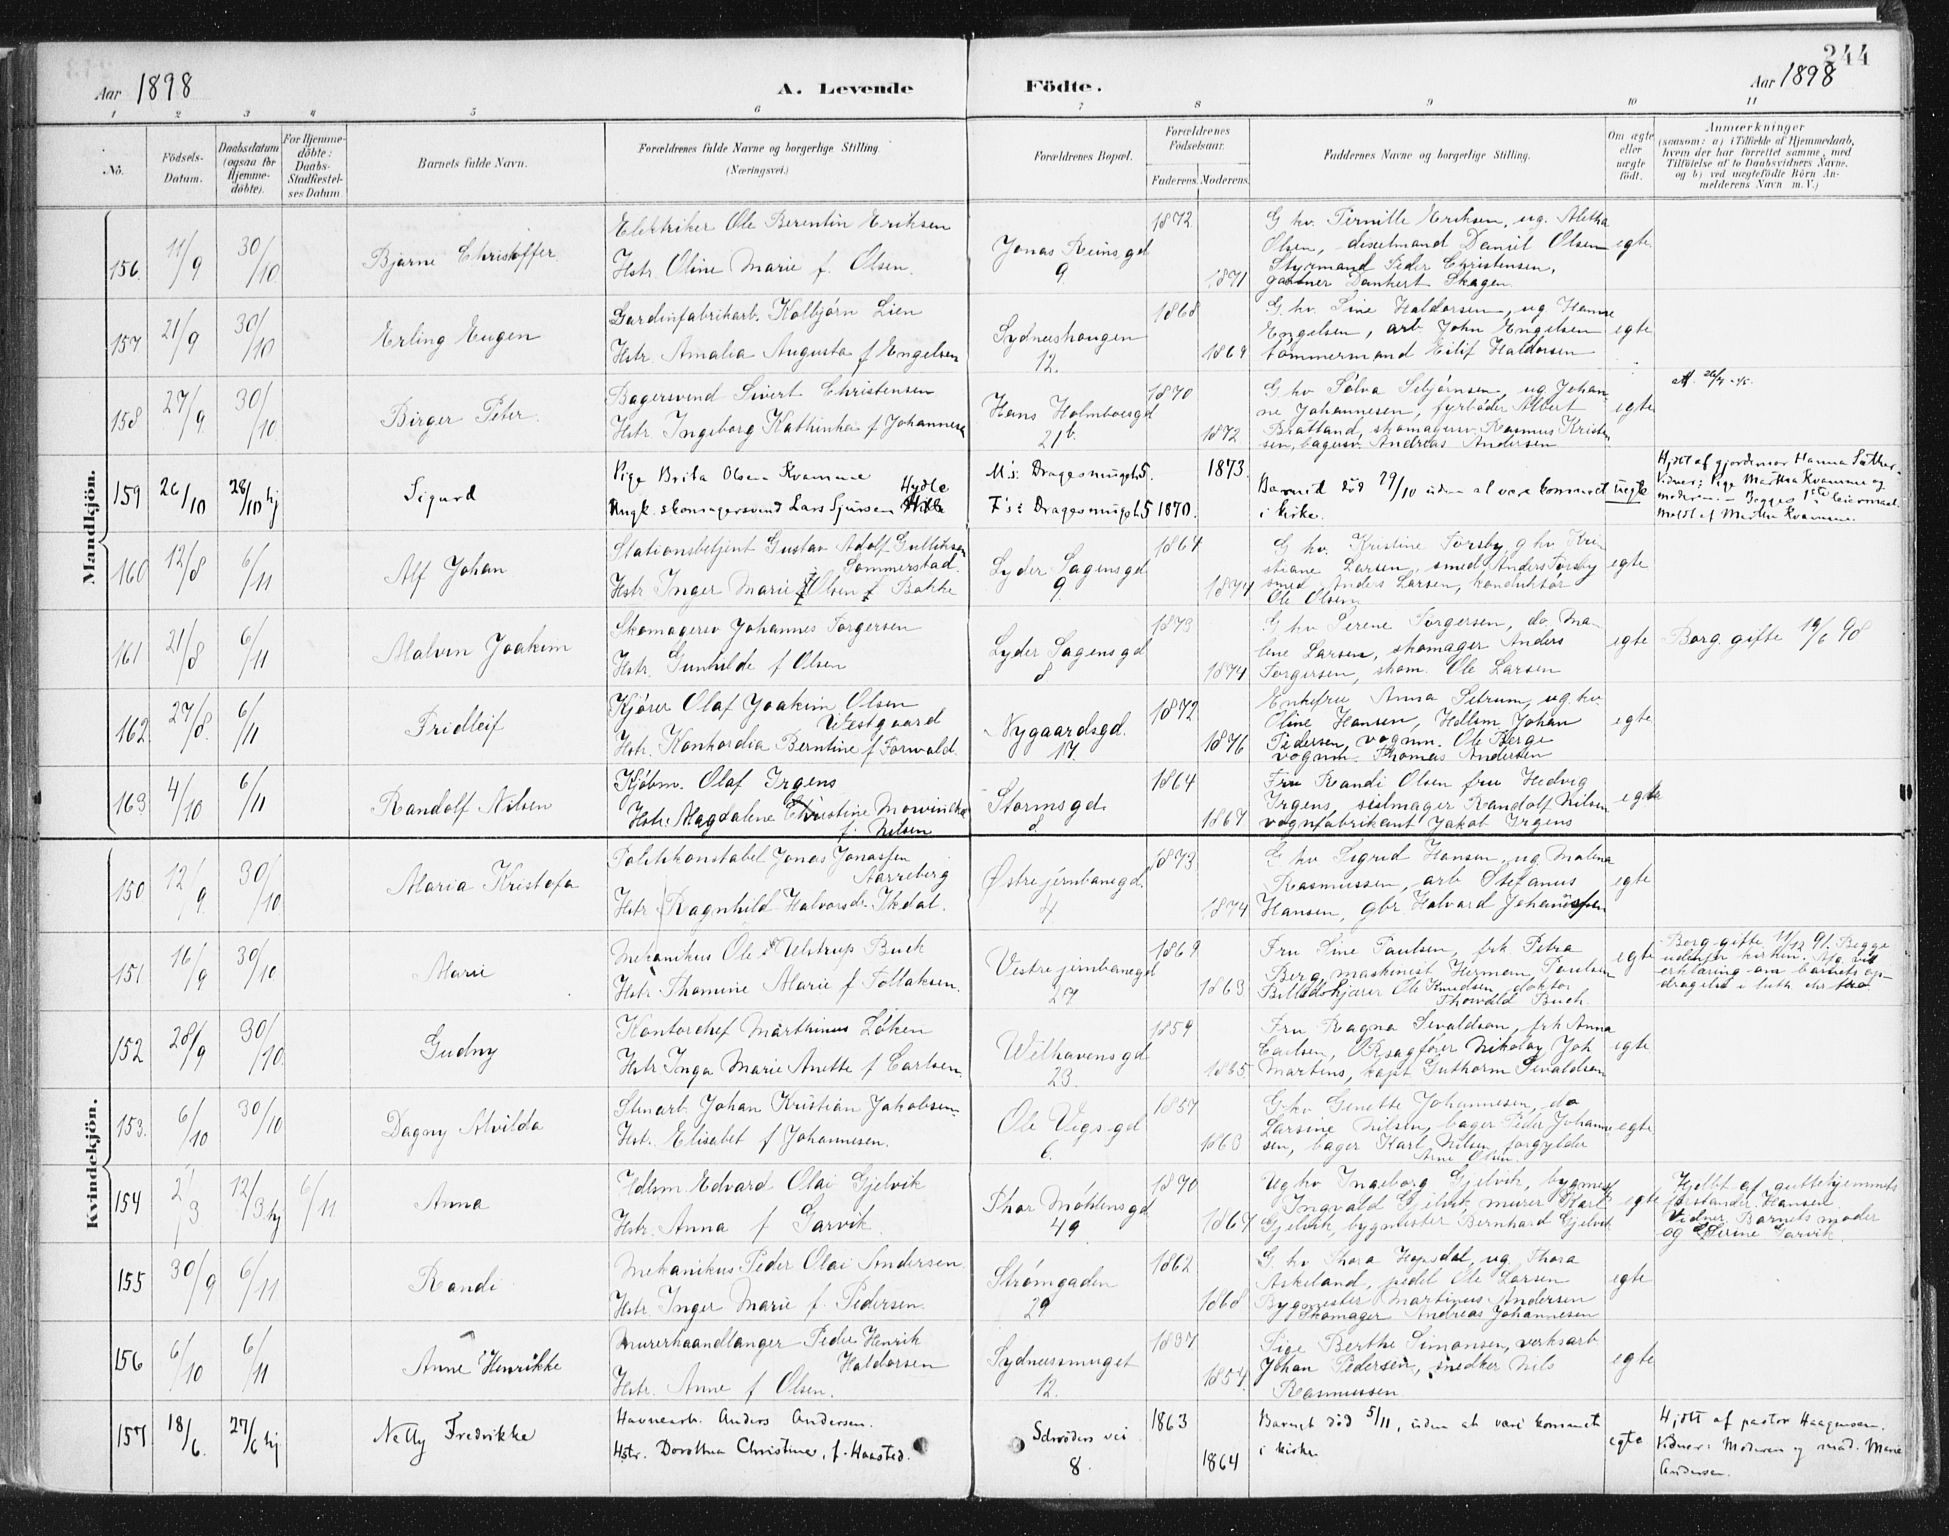 244
Aar 1898
A. Levende Födte.
Aar 1898
1 2 3 4 5 6 7 8 9 10 11
No.
Födsels-Datum.
Daabsdatum (ogsaa for Hjemme-döbte).
For Hjemme-döbte: Daabs-Stadfæstel-ses Datum
Barnets fulde Navn.
Forældrenes fulde Navne og borgerlige Stilling (Næringsvei.)
Forældrenes Bopæl.
Forældrenes Födselsaar.
Faderens. Moderens.
Faddernes Navne og borgerlige Stilling.
Om ægte eller uægte födt.
Anmærkninger
(saasom: a) i Tilfælde af Hjemmedaab,
hvem der har forrettet samme, med
Tilföielse af to Daabsvidners Navne,
og b) ved uægtefödte Börn An-
melderens Navn m.V.)
Mandkjön.
156. 11/9 30/10 Bjarne Christoffer
Elektriker Ole Berentin Eriksen
Hstr. Oline Marie f. Olsen.
Jonas Reinsgd
9
1872
1871
G hv. Pernille Eriksen, ug. Aletha
Olsen, diselmand Daniel Olsen
Styrmand Peder Christensen,
gartner Dankert Skagen
egte
157 21/9 30/10 Erling Eugen
Gardinfabrikarb. Kolbjørn Lien
Hstr Amalia Augusta f Engelsen
Sydneshaugen
12.
1868
1869
G. hv. Sine Haldorsen, ug Hanne
Engelsen, arb John Engelsen
tømmermand Eilif Haldorsen
egte
158 27/9 30/10 Birger Peter
Bagersvend Sivert Christensen
Hstr. Ingeborg Kathinka f Johannesen
Hans Holmboesgd
21b.
1870
1872
G hv Sølva Sebjørnsen, ug Johan
ne Johannesen, fyrbøder Albert
Brattand, skomagersv. Rasmus Kristen
sen, bagersv. Andreas Andersen
egte
159 26/10 28/10 hj Sigurd
Pige Brita Olsen Kvamme
Ungk. skomagersvend Lars Sjursen Hylle
M's: Dragesmuget 5.
F's: Dragesmuget 5
1870.
1873.
Barnet død 29/10 uden at være kommet
i kirke.
uegte
Hjdt af gjordemor Hanna Sæther.
Vidner: Pige Martha Kvamme og
moderen. - Begges 1ste leiermaal.
Meldt af Martha Kvamme.
160 12/8 6/11 Alf Johan
Stationsbetjent Gustav Adolf Gulliksen
Sommerstad.
Hstr Inger Marie Olsen f Bakke
Lyder Sagensgd
9
1864
1874
G hv. Kristine Forsby, g hv Kri-
stiane Larsen, smed Anders Forsby
smed Anders Larsen, konduktør
Ole Olsen
egte
161 21/8 6/11 Malvin Joakim
Skomagersv Johannes Torgersen
Hstr. Gunhilde f Olsen
Lyder Sagensgd
8
1873
1874
G hv Serene Torgersen, do Ma-
lene Larsen, skomager Anders
Torgersen, skom. Ole Larsen
egte
Borg. gifte 19/6 98
162. 27/8. 6/11 Fridleif
Kjører Olaf Joakim Olsen
Westgaard
Hstr. Konkordia Berntine f Torwald.
Nygaardsgd.
17.
1872
1876
Enkefru Anna Setrum, ug hv.
Oline Hansen, Hdlsm Johan
Pedersen, vognm. Ole Berge
vognm. Thomas Andersen
egte
163 4/10 6/11 Randolf Nilsen
Kjøbm. Olaf Irgens
Hstr. Magdalene Christine Mowinckel
f. Nilsen
Stormsgd.
8
1864
1867
Fru Randi Olsen fru Hedvig
Irgens, seilmager Randolf Nilsen
vognfabrikant Jakob Irgens
egte
Kvindekjön.
150 12/9 30/10 Maria Kristofa
Politikonstabel Jonas Jonassen
Aarreberg
Hstr Ragnhild Halvorsdr. Ikdal.
Østre jernbanegd.
4
1873
1874
G hv Sigrid Hansen, ug Malena
Rasmussen, arb Stefanus
Hansen, gbr. Halvard Johannessen
egte
151 16/9 30/10 Marie
Mekanikus Ole Ulstrup Buch
Hstr Thomine Marie f Tollaksen.
Vestre jernbanegd
27
1869
1863
Fru Sine Paulsen, frk Petra
Berg, maskinist Herman Paulsen
Billedskjærer Ole Knudsen, doktor
Thorvald Buch
egte
Borg gifte 11/12 91. Begge
udenfor kirken. Afg. vis
erklæring om barnets op-
dragelse i luth. chr tro
152 28/9 30/10. Gudny
Kontorchef Marthinus Løken
Hstr. Inga Marie Anette f Carlsen.
Welhavensgd
23.
1859
1865.
Fru Ragna Sivaldsen, frk Anna
Carlsen, ORsagfører Nikolay Joh
Martens, kapt Guthorm Sivaldsen
egte
153. 6/10 30/10 Dagny Alvilda
Stenarb. Johan Kristian Jakobsen
Hstr. Elisabet f Johannesen.
Ole Vigsgd
6.
1857
1863
G hv Genette Johannesen, do
Larsine Nilsen, bager Peder Johanne
sen, bager Karl Nilsen, forgylder
Arne Olsen.
egte
154 2/3 12/3 hj 6/11 Anna
Hdlsm Edvard Olai Gjelvik
Hstr. Anna f Garvik.
Thor Møhlensgd
49
1870
1867
Ug hv Ingeborg Gjelvik, bygmest
Ingvald Gjelvik, murer Karl
Gjelvik, bygmester Bernhard Gjelvik
egte
Hjdbt af guttehjemmets
forstander Hansen.
Vidner: Barnets moder
og Serine Garvik.
155 30/9 6/11 Randi
Mekanikus Peder Olai Andersen
Hstr. Inger Marie f. Pedersen.
Strømgaden
29
1862
1868
G. hv Thora Hopsdal, ug Thora
Askeland, pedel Ole Larsen
Bygmester Martinus Andersen
Skomager Andreas Johannesen
egte
156 6/10 6/11 Anne Henrikke
Murerhaandlanger Peder Henrik
Haldorsen
Hstr. Anne f Olsen.
Sydnessmuget
12.
1837
1854
Pige Berthe Simonsen, verksarb
Johan Pedersen, snedker Nils
Rasmussen
egte
157 18/6. 27/6 hj Nelly Fredrikke
Havnearb. Anders Andersen.
Hstr. Dorothea Christine, f. Haasted.
Schrøders vei
8.
1863
1864
Barnet død 5/11, uden at være kommet
i kirke
egte
Hjdt af pastor Haagensen.
Vidner: Moderen og mad. Marie
Andersen.